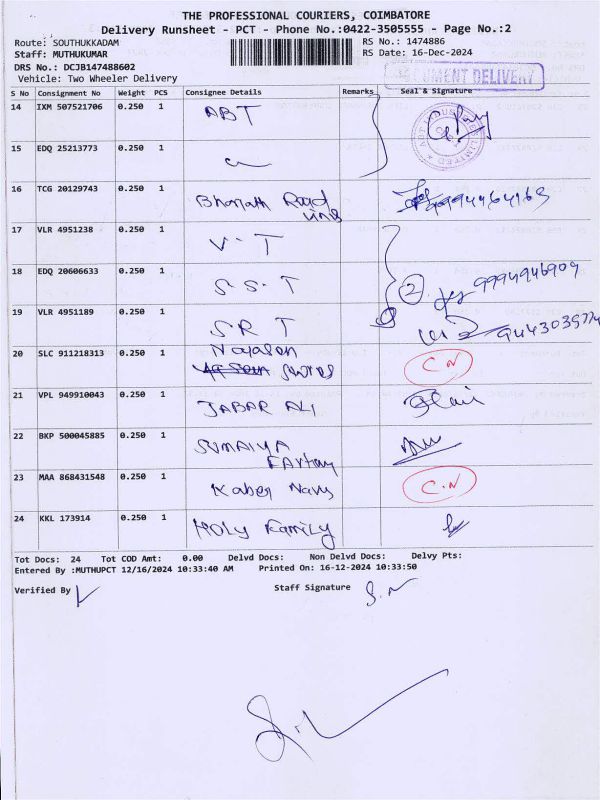 THE PROFESSIONAL COURIERS, COIMBATORE
Delivery Runsheet - PCT - Phone No.:0422-3505555 - Page No.:2
Route: SOUTHUKKADAM RS No.: 1474886
Staff: MUTHUKUMAR RS Date: 16-Dec-2024
DRS No.: DCJB147488602
DOCUMENT DELIVERY
Vehicle: Two Wheeler Delivery
S No Consignment No Weight PCS Consignee Details Remarks Seal & Signature
14 IXM 507521706 0.250 1 ABT
15 EDQ 25213773 0.250 1
16 TCG 20129743 0.250 1 Bharath Road
17 VLR 4951238 0.250 1 V-T
18 EDQ 20606633 0.250 1 S.S.T 2 9994946909
19 VLR 4951189 0.250 1 SRT
20 SLC 911218313 0.250 1 C.N
21 VPL 949910043 0.250 1 JABAR ALI
22 BKP 500045885 0.250 1 SUMAIYA
23 MAA 868431548 0.250 1 Kaber Navy C.N
24 KKL 173914 0.250 1 HOLY Family
Tot Docs: 24 Tot COD Amt: 0.00 Delvd Docs: Non Delvd Docs: Delvy Pts:
Entered By :MUTHUPCT 12/16/2024 10:33:40 AM Printed On: 16-12-2024 10:33:50
Verified By Staff Signature S.N